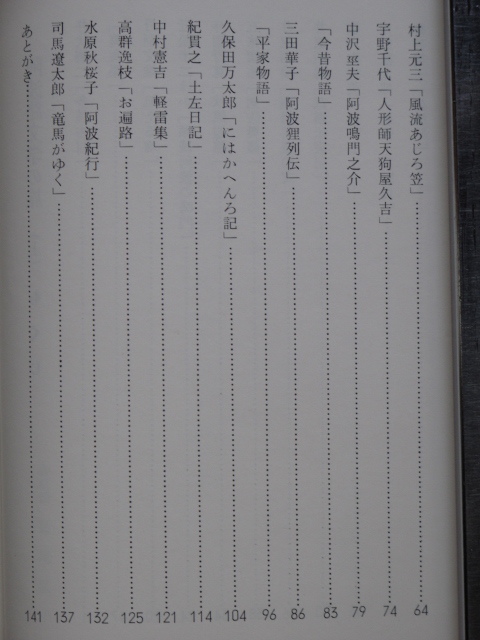 村上元三「風流あじろ笠」 64
宇野千代「人形師天狗屋久吉」 74
中沢巠夫「阿波鳴門之介」 79
「今昔物語」 83
三田華子「阿波狸列伝」 86
「平家物語」 96
久保田万太郎「にはかへんろ記」 104
紀貫之「土左日記」 114
中村憲吉「軽雷集」 121
高群逸枝「お遍路」 125
水原秋桜子「阿波紀行」 132
司馬遼太郎「竜馬がゆく」 137
あとがき 141